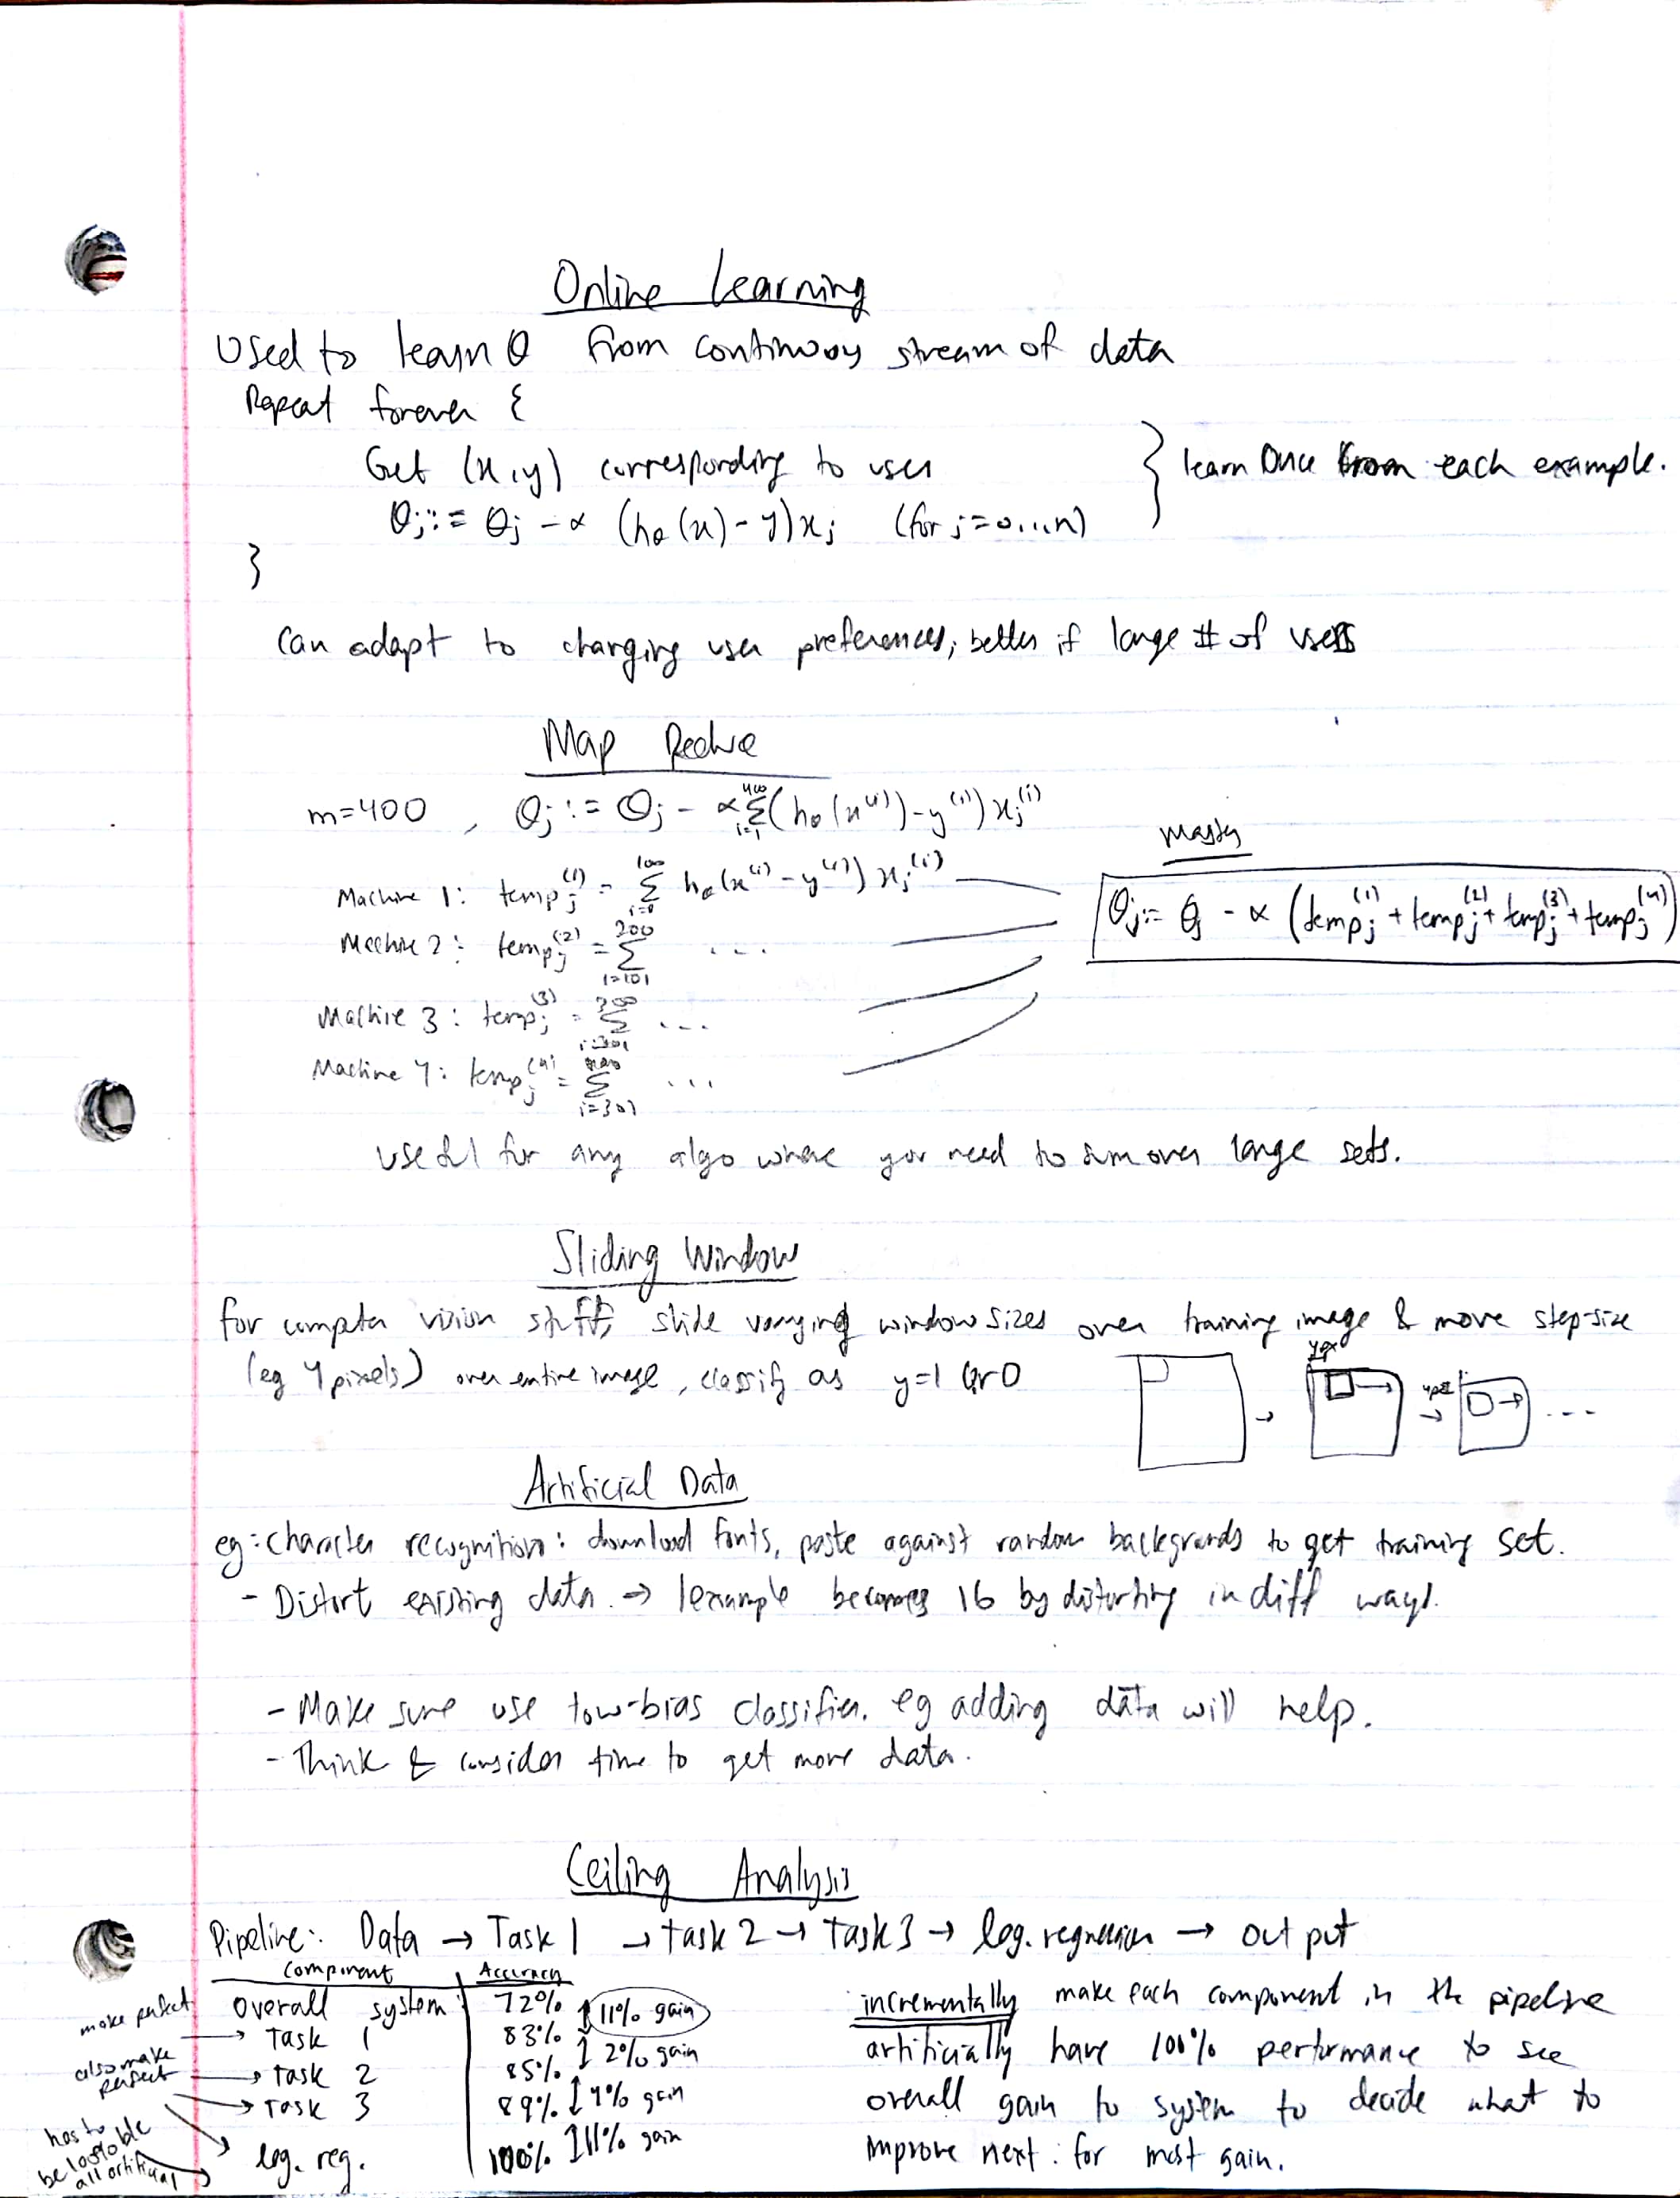 Online Learning
Used to learn θ from continuous stream of data
Repeat forever {
Get (x,y) corresponding to user
θj := θj - α (hθ(x) - y)xj (for j=0...n)
} learn once from each example.
}
Can adapt to changing user preferences; better if large # of users
Map Reduce
m=400 , θj := θj - α Σ i=1 400 (hθ(x^(i)) - y^(i)) xj^(i)
Machine 1: tempj^(1) = Σ i=0 100 hθ(x^(i) - y^(i)) xj^(i)
Machine 2: tempj^(2) = Σ i=101 200 ...
Machine 3: tempj^(3) = Σ ...
Machine 4: tempj^(4) = Σ i=301 ...
Master
θj := θj - α (tempj^(1) + tempj^(2) + tempj^(3) + tempj^(4))
useful for any algo where you need to sum over large sets.
Sliding Window
for computer vision stuff, slide varying window sizes over training image & move step-size
(eg 4 pixels) over entire image, classify as y=1 or 0
4px
→ → ...
Artificial Data
eg: character recognition: download fonts, paste against random backgrounds to get training set.
- Distort existing data. → 1 example becomes 16 by distorting in diff ways.
- Make sure use low-bias classifier. eg adding data will help.
- Think & consider time to get more data.
Ceiling Analysis
Pipeline: Data → Task 1 → task 2 → Task 3 → log. regression → output
Component | Accuracy
Overall system: 72%
↕ 11% gain
make perfect → Task 1 83%
↕ 2% gain
also make perfect → task 2 85%
↕ 4% gain
→ Task 3 89%
↕ 11% gain
has to be 100% b/c all artificial → log. reg. 100%
incrementally make each component in the pipeline
artificially have 100% performance to see
overall gain to system to decide what to
improve next: for most gain.